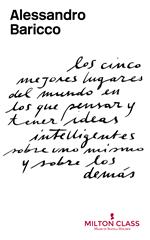 Alessandro
Baricco
los cinco
mejores lugares
del mundo en
los que pensar y
tener ideas
intelligentes
sobre uno mismo
y sobre los
demás
MILTON CLASS